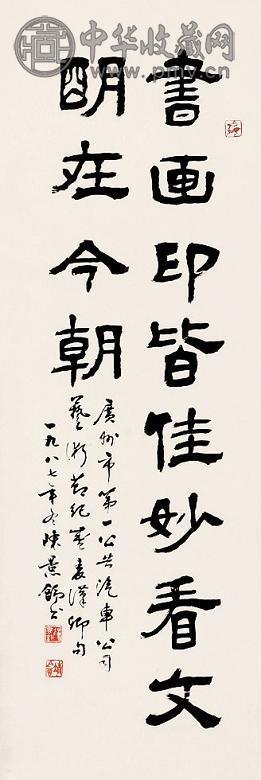 中华收藏网
www.pmyv.cn
書画印皆佳妙看文
明在今朝
廣州市第一公共汽車公司
藝術節紀盛麦漢卿句
一九八七年冬陳景舒書